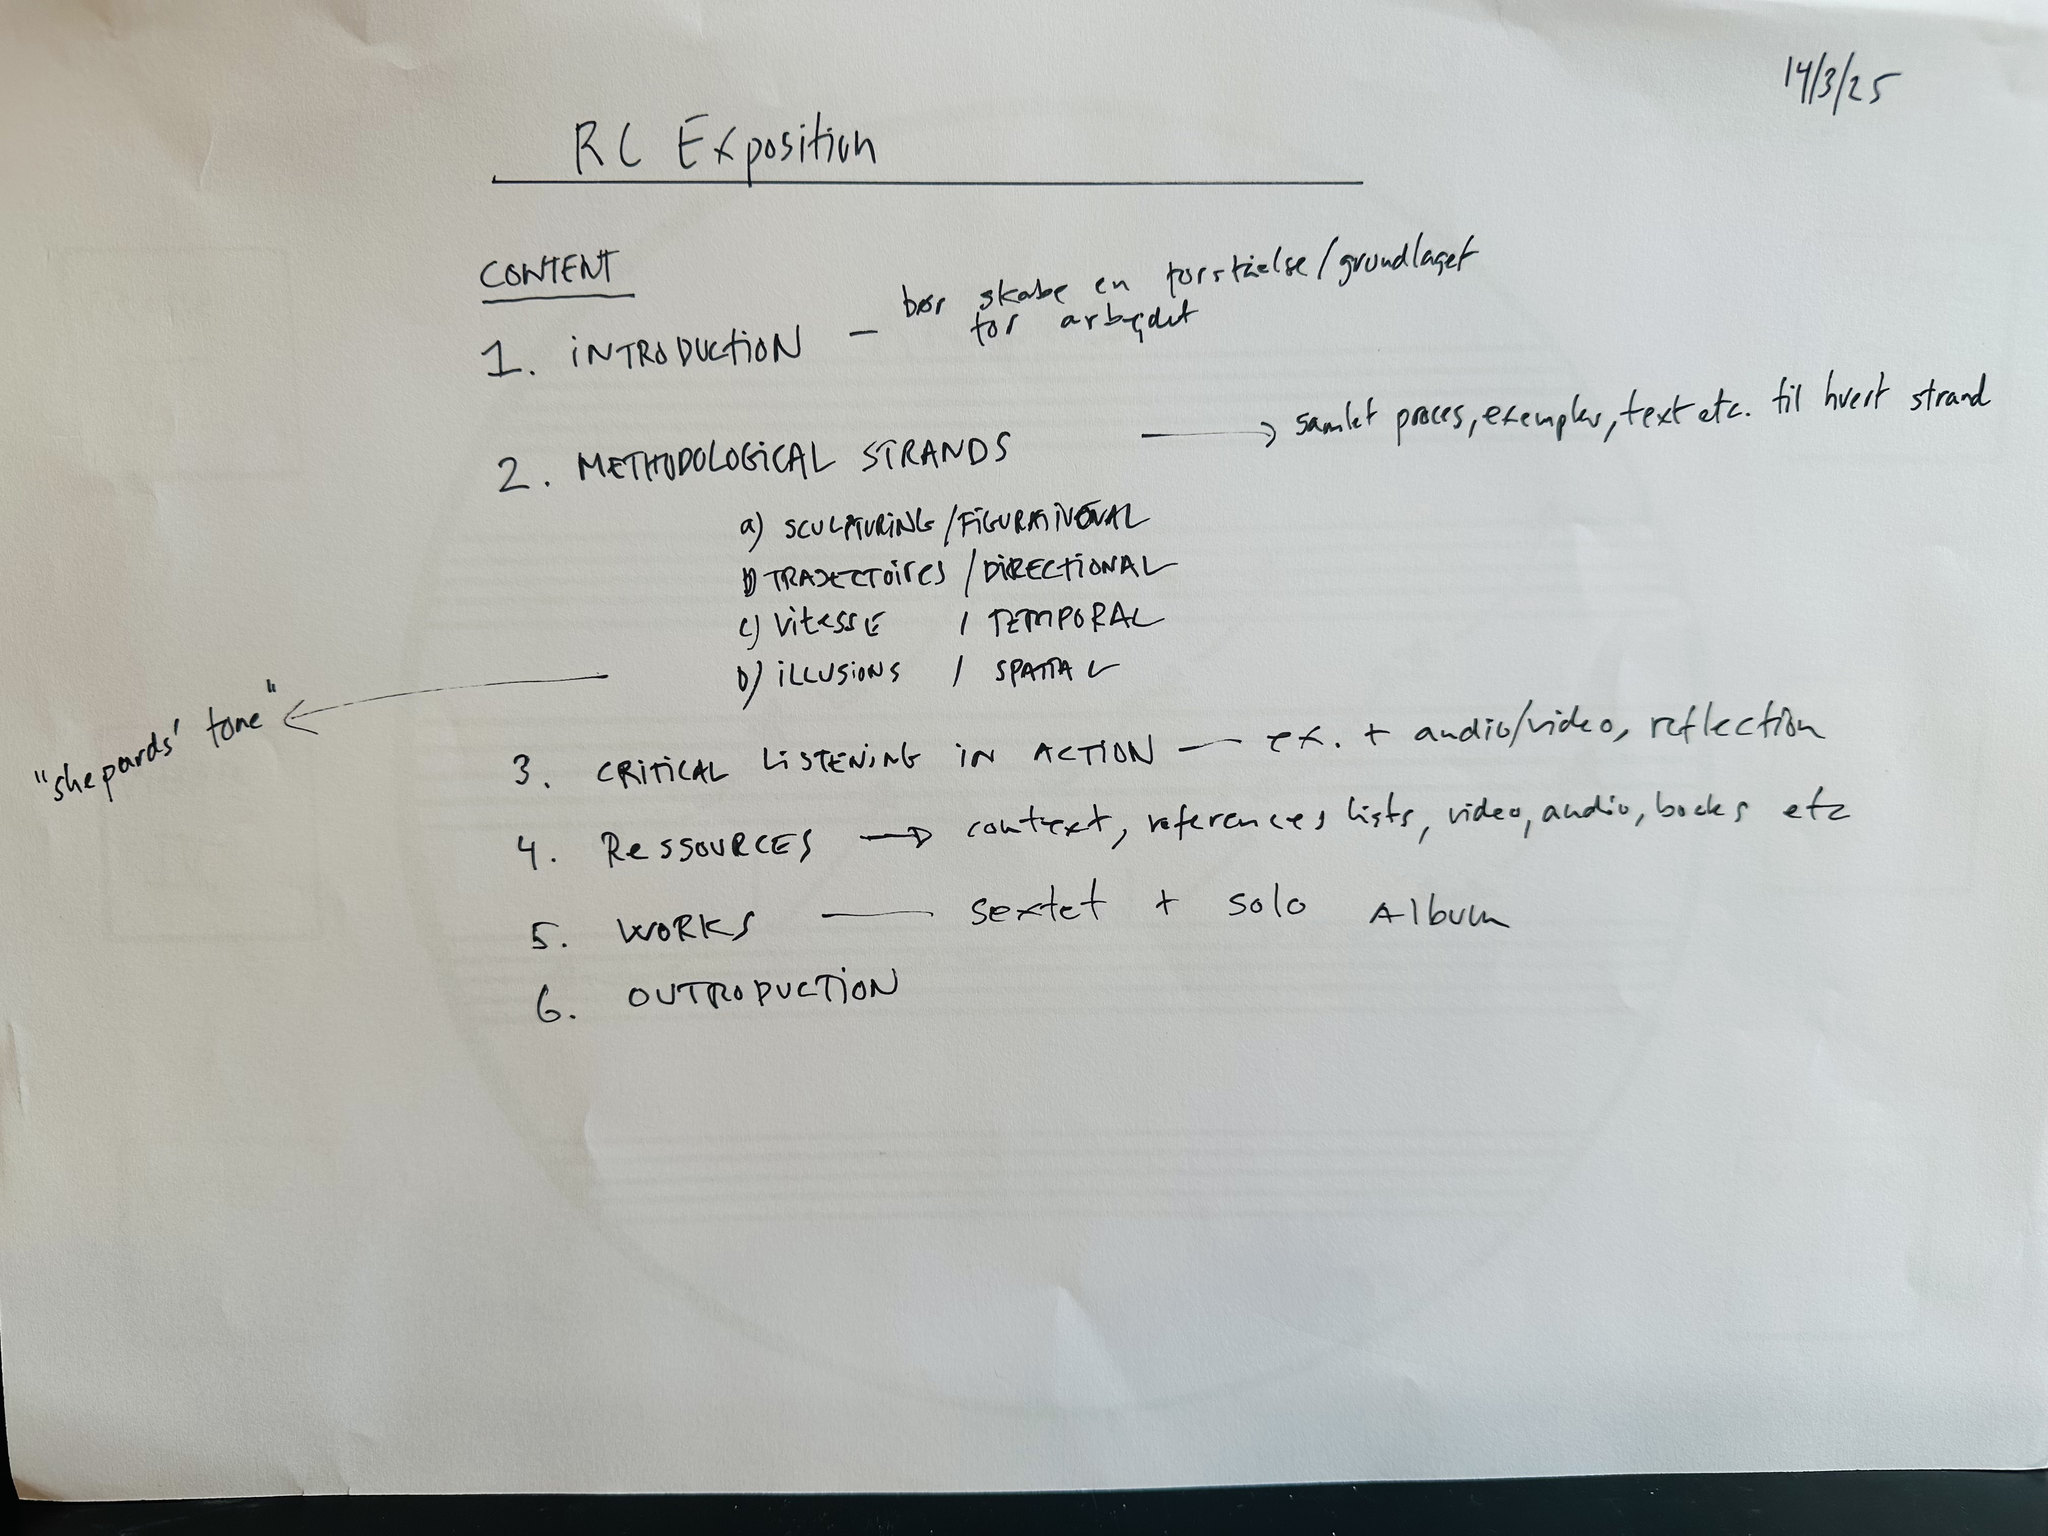 14/3/25
RC Exposition
CONTENT
1. INTRODUCTION — bør skabe en forståelse/grundlaget
for arbejdet
2. METHODOLOGICAL STRANDS → samlet proces, exempler, text etc. til hvert strand
a) SCULPTURING / FIGURATIONAL
b) TRAJECTOIRES / DIRECTIONAL
c) VITESSE / TEMPORAL
D) ILLUSIONS / SPATIAL
"shepards' tone"
3. CRITICAL LISTENING IN ACTION — ex. + audio/video, reflection
4. RESSOURCES → context, references lists, video, audio, books etc
5. WORKS — sextet + solo Album
6. OUTRODUCTION